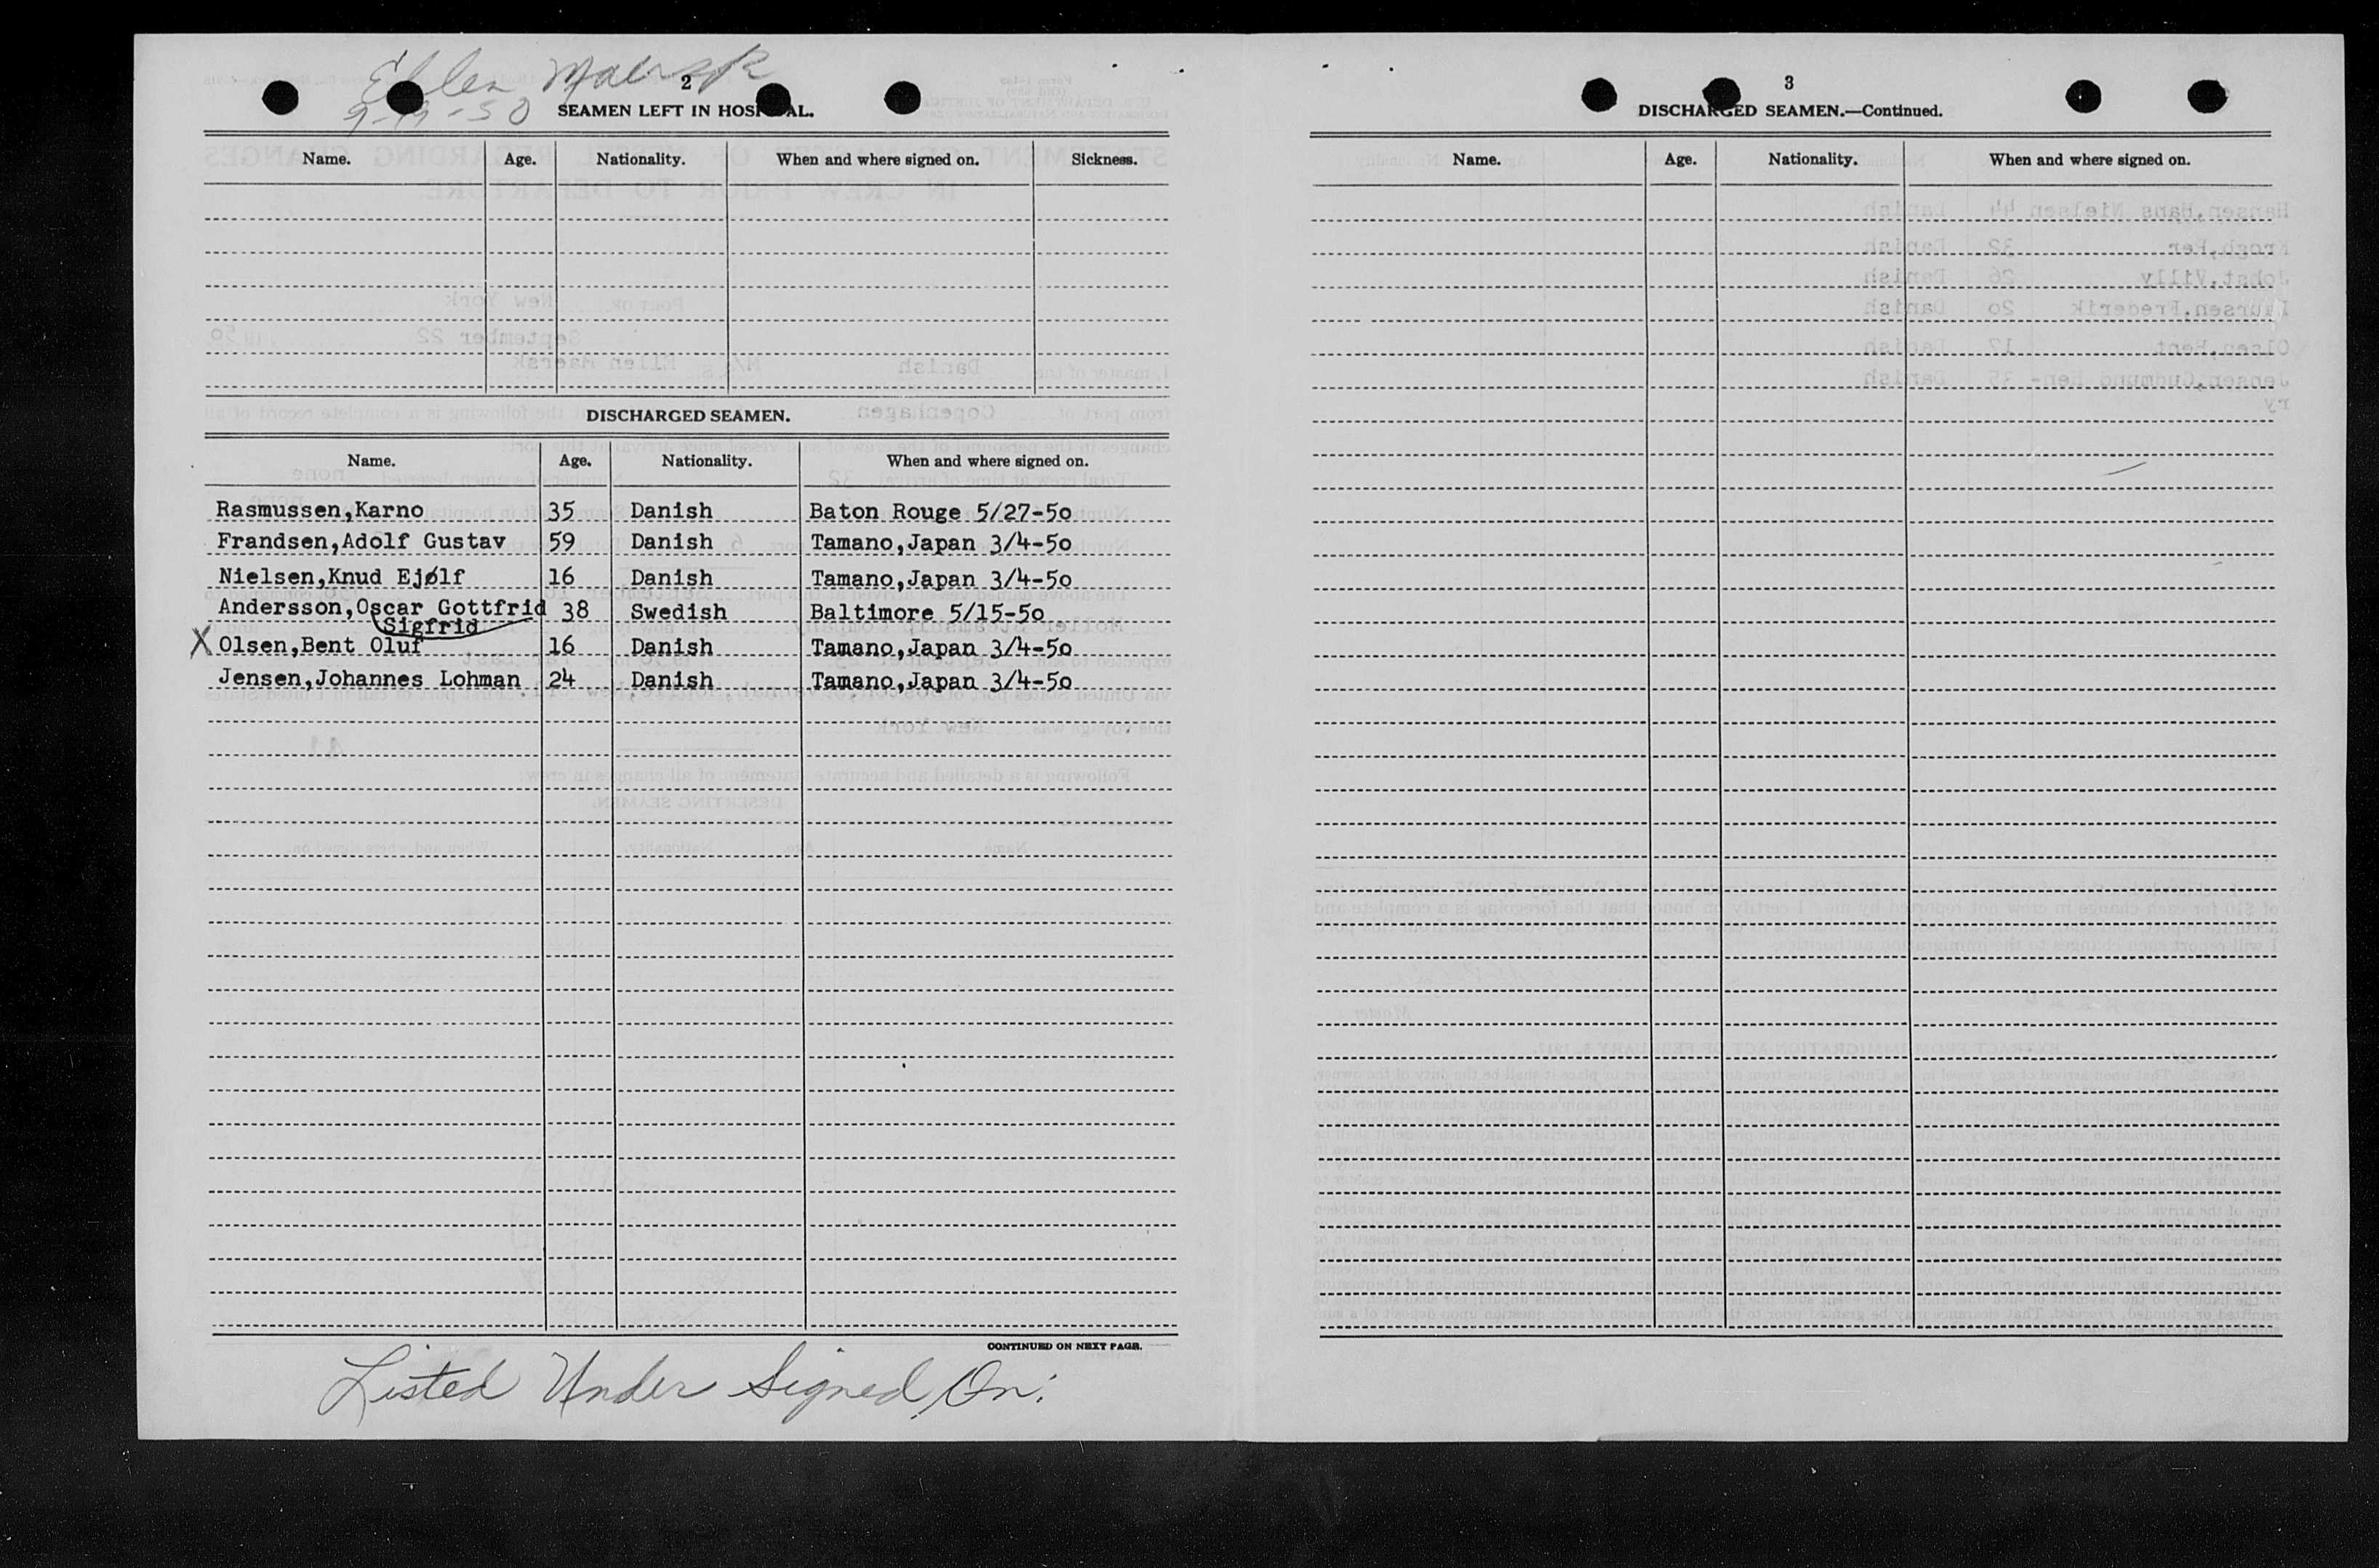 Ellen Maersk
9-19-50
2
SEAMEN LEFT IN HOSPITAL.
Name. Age. Nationality. When and where signed on. Sickness.
DISCHARGED SEAMEN.
Name. Age. Nationality. When and where signed on.
Rasmussen,Karno 35 Danish Baton Rouge 5/27-50
Frandsen,Adolf Gustav 59 Danish Tamano,Japan 3/4-50
Nielsen,Knud Ejølf 16 Danish Tamano,Japan 3/4-50
Andersson,Oscar Gottfrid 38 Swedish Baltimore 5/15-50
Sigfrid
X Olsen,Bent Oluf 16 Danish Tamano,Japan 3/4-50
Jensen,Johannes Lohman 24 Danish Tamano,Japan 3/4-50
CONTINUED ON NEXT PAGE.
Listed Under Signed On:
3
DISCHARGED SEAMEN.—Continued.
Name. Age. Nationality. When and where signed on.